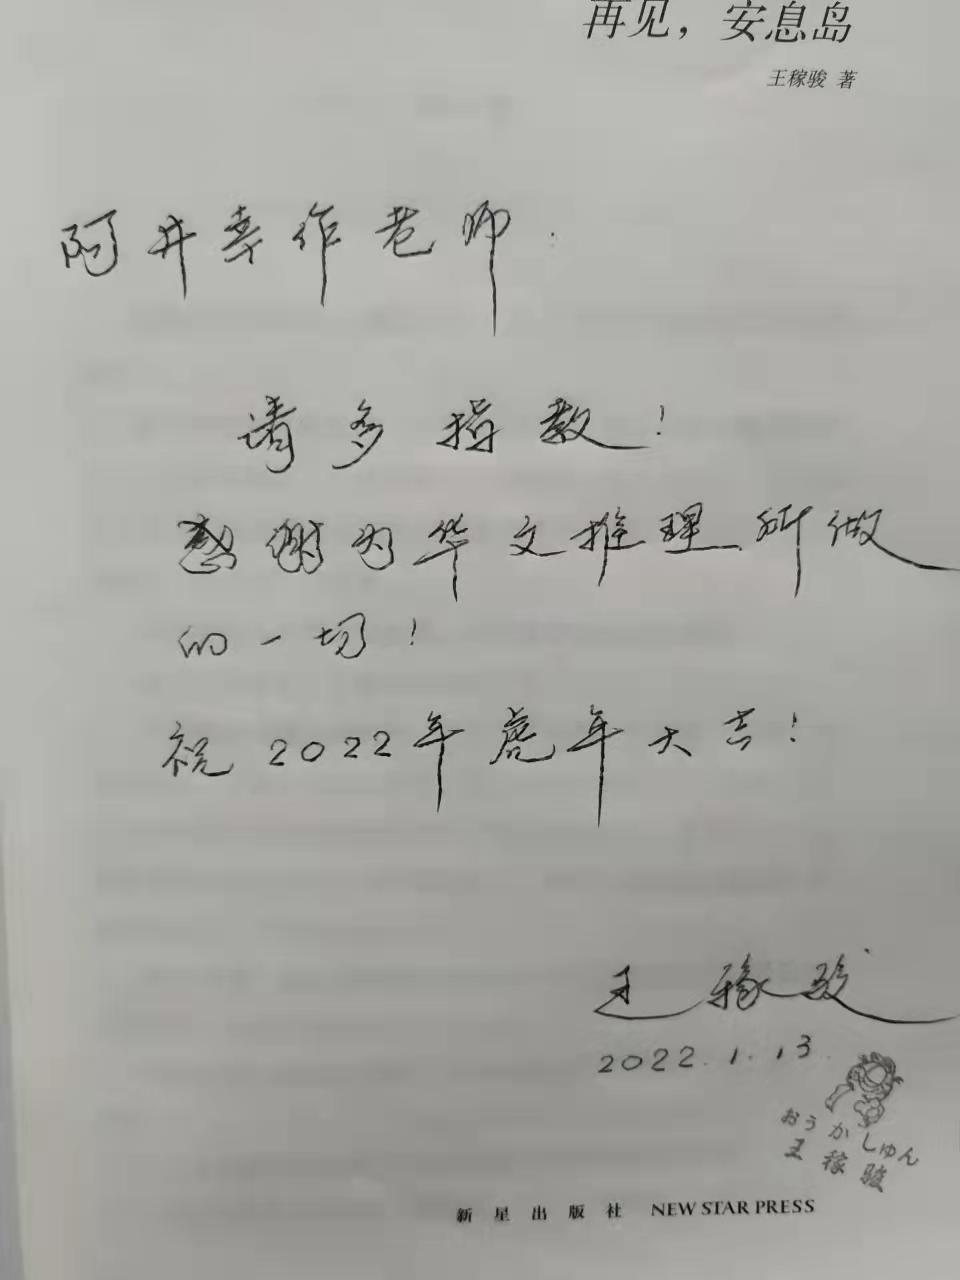 再见，安息岛
王稼骏 著
阿井幸作老师：
请多指教！
感谢为华文推理所做
的一切！
祝2022年虎年大吉！
王稼骏
2022.1.13
おうかしゅん
王稼骏
新星出版社 NEW STAR PRESS